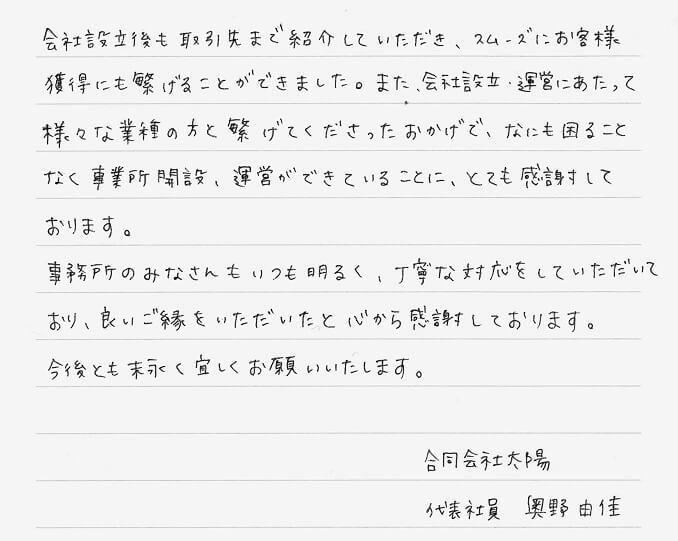 会社設立後も取引先まで紹介していただき、スムーズにお客様
獲得にも繋げることができました。また、会社設立・運営にあたって
様々な業種の方と繋げてくださったおかげで、なにも困ること
なく事業所開設、運営ができていることに、とても感謝して
おります。
事務所のみなさんもいつも明るく、丁寧な対応をしていただいて
おり、良いご縁をいただいたと心から感謝しております。
今後とも末永く宜しくお願いいたします。
合同会社太陽
代表社員 奥野由佳